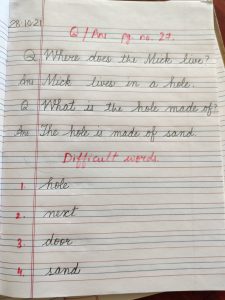 28.10.21
Q/Ans pg no. 27.
Q Where does the Mick live?
Ans Mick lives in a hole.
Q What is the hole made of?
Ans The hole is made of sand.
Difficult words.
1. hole
2. next
3. door
4. sand